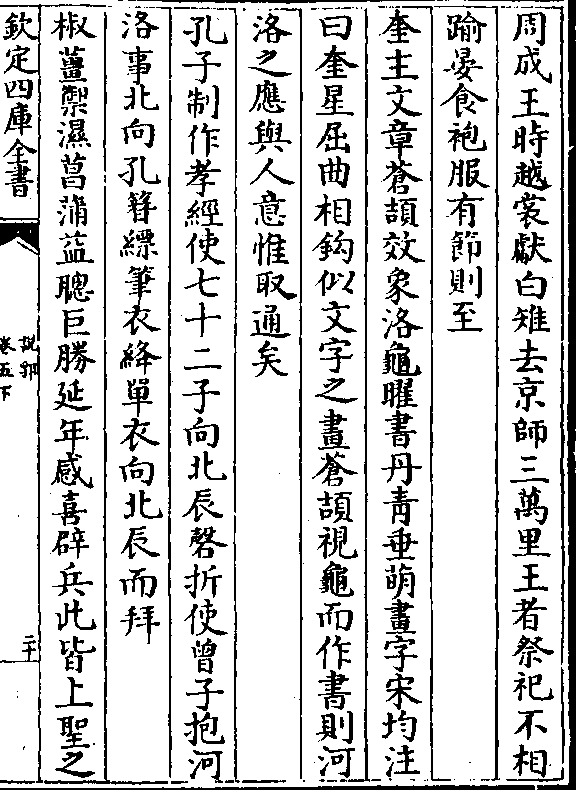 周成王時越裳獻白雉去京師三萬里王者祭祀不相
踰晏食袍服有節則至
奎主文章蒼頡效象洛龜曜書丹青垂萌畫字宋均注
曰奎星屈曲相鈎似文字之畫蒼頡視龜而作書則河
洛之應與人意惟取通矣
孔子制作孝經使七十二子向北辰磬折使曾子抱河
洛事北向孔簪縹筆衣絳單衣向北辰而拜
椒薑禦濕菖蒲益聰巨勝延年威喜辟兵此皆上聖之
欽定四庫全書
說郛
卷五下
二十